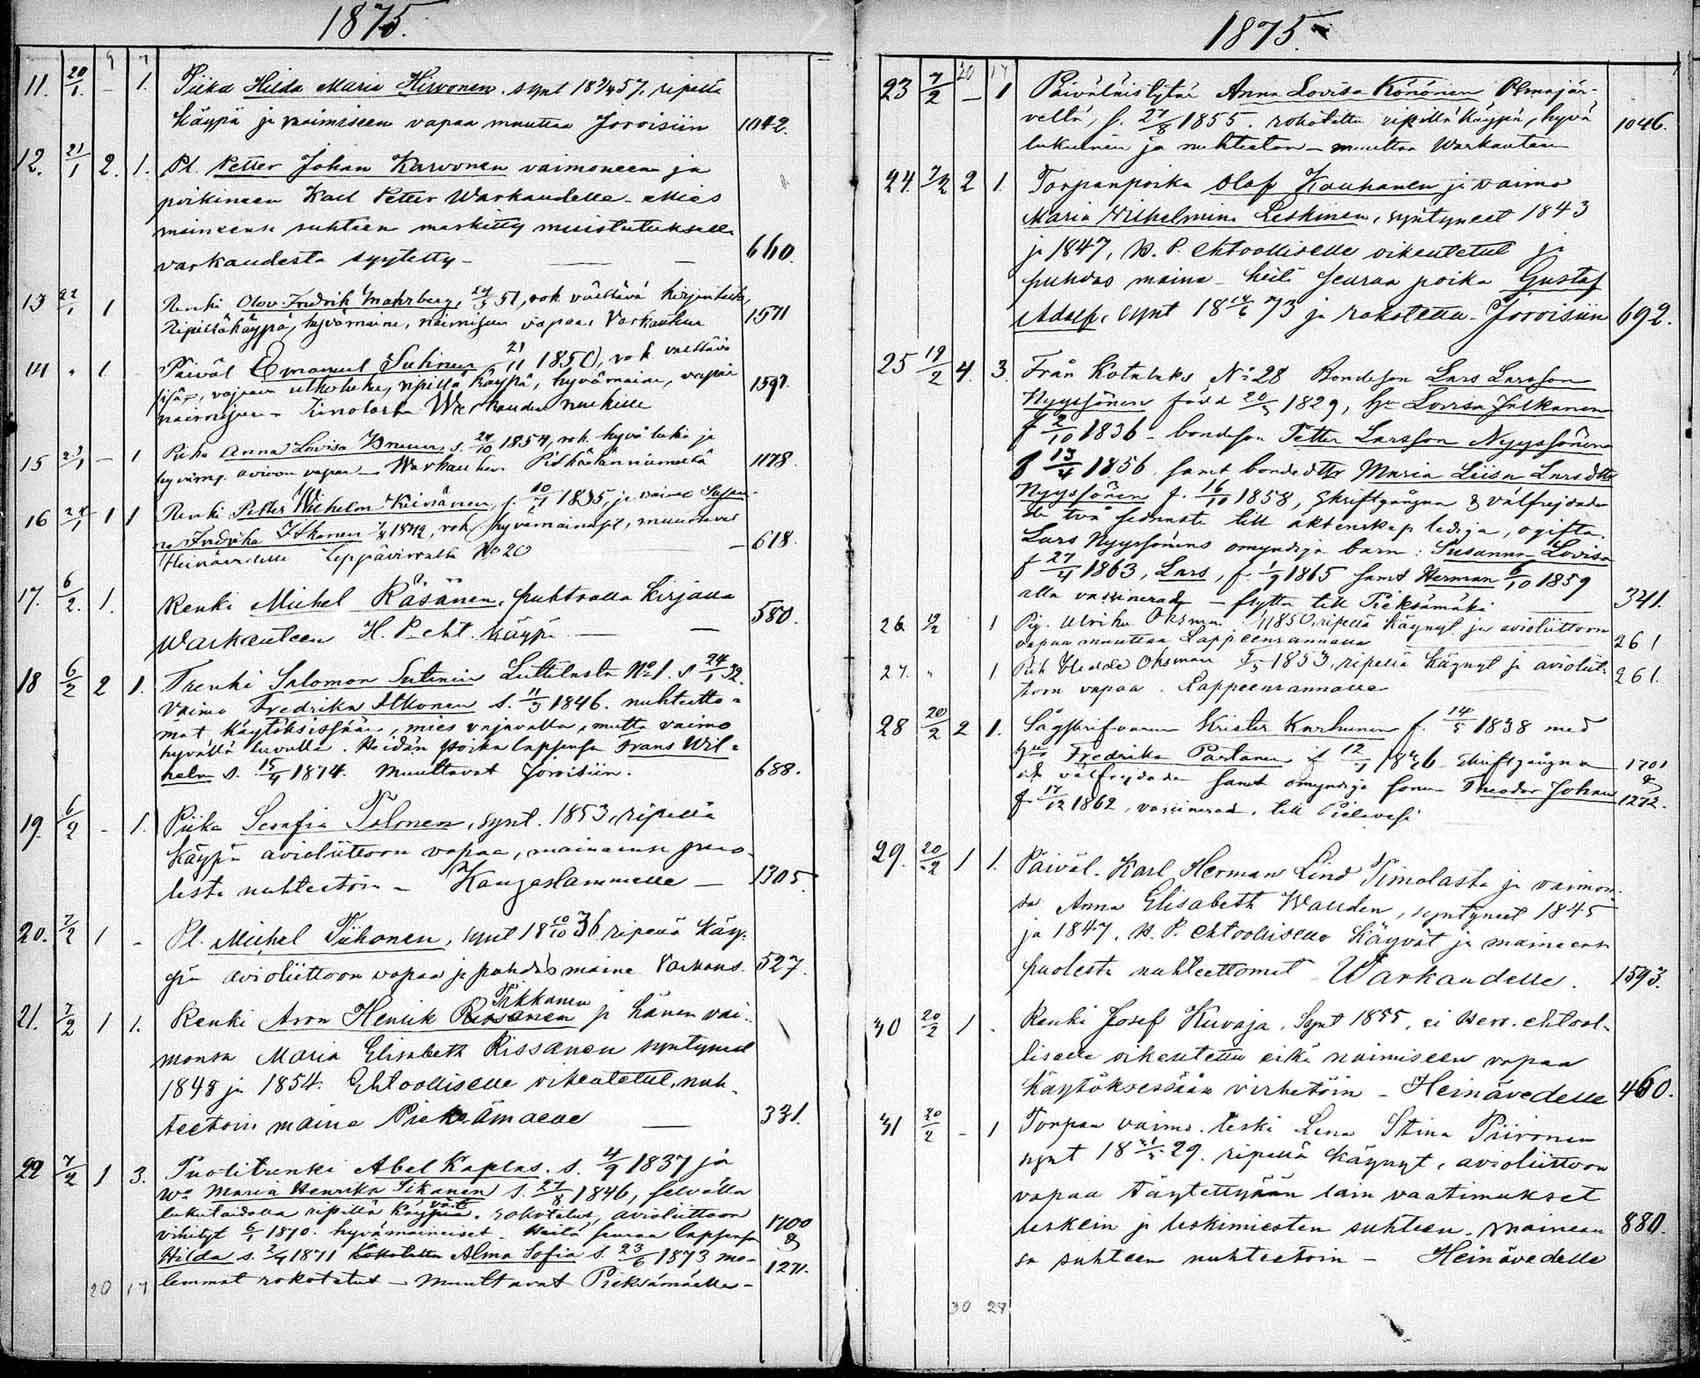 1875.
9 7
11. 20/1. – 1. Piika Hilda Maria Hirvonen, synt 18 57, ripillä
käypä ja naimiseen vapaa muuttaa Joroisiin 1042.
12. 21/1 2. 1. Pl. Petter Johan Karvonen vaimoneen ja
poikineen Karl Petter Warkaudelle. Mies
maineensa suhteen merkitty muistutuksella
varkaudesta syytetty – 660.
13 22/1 1 Renki Olov Fredrik Mahrberg, 51, rok välttävä
Ripillä käypä, hyvämaine, naimiseen vapaa Varkauteen 1571
14 " 1 Päiväl Emanuel Suhinen 21/11 1850, rok välttävä
sisä, vajaa ulkoluku, ripillä käypä, hyvämaine, vapaa
naimiseen – Warkauden 1597.
15 23/1 – 1 Piika Anna Lovisa s. 24/10 1854, rok. hyvä luku ja
avioon vapaa – Warkauteen 1178.
16 24/1 1 1 Renki Petter Wilhelm f. 10/7 1835, ja vaimo Susan-
na Fredrika Itkonen 1842, rok. hyvämaineiset, muuttavat
Heinävedelle Leppävirralta No 20 – 618.
17. 6/2. 1. Renki Michel Räsänen, puhtaalla kirjalla
Warkauteen H. P. eht. käypä – 580.
18 6/2 2 1. Trenki Salomon Sutinen No 1. s 24/1 32.
Vaimo Fredrika Itkonen s. 11/3 1846. nuhteetto-
mat käytöksissään, mies vajavalla, mutta vaimo
hyvällä luvulla. Heidän poika lapsensa Frans Wil-
helm s. 15/4 1874. Muuttavat Joroisiin. 688.
19. 6/2 – 1. Piika Serafia Tolonen, synt. 1853, ripillä
käypä avioliittoon vapaa, maineensa puo-
lesta nuhteetoin – Kangaslammille – 1305.
20. 7/2 1 – Pl. Michel Tiihonen, synt 18 10/10 36 ripillä käy-
pä avioliittoon vapaa ja puhdas maine Varkaus. 527.
21. 7/2 1 1. Renki Aron Henrik Rissanen Tikkanen ja hänen vai-
monsa Maria Elisabeth Rissanen syntyneet
1848 ja 1854. Ehtoolliselle oikeutetut, nuh-
teetoin maine Pieksämäelle 331.
22 7/2 1 3. Puotitrenki Abel Kaplas. s. 4/9 1837 ja
Wo Maria Henrika Tikanen s. 27/8 1846, selvällä
lukutaidolla ripillä käyvät. rokotetut, avioliittoon
vihityt 1870. hyvämaineiset. Heitä seuraa lapsensa 1700
Hilda s. 1871 Alma Sofia s. 23/6 1873 mo- & 1271.
lemmat rokotetut – Muuttavat Pieksämäelle –
20 17
1875.
20 17
23 7/2 – 1 Päiväläistytär Anna Lovisa Könönen Olmajär-
veltä, f. 27/8 1855. rokotettu ripillä käypä, hyvä
lukuinen ja nuhteeton – muuttaa Warkauteen 1046.
24. 7/2 2 1. Torpanpoika Olof Kauhanen ja vaimo
Maria Wilhelmina Leskinen, syntyneet 1843
ja 1847, H. P. ehtoolliselle oikeutetut ja
puhdas maine – heitä seuraa poika Gustaf
Adolf, synt 18 73 ja rokotettu – Joroisiin 692.
25 19/2 4. 3. Från Kotalaks No 28 Bondeson Lars Larsson
Nyyssönen född 20/5 1829, hu Lovisa Julkanen
f 2/10 1836 – bondeson Petter Larsson Nyyssönen
f 13/4 1856. samt bonde dtr Maria Liisa Lars dtr
Nyyssönen f. 16/10 1858, skriftgångna & välfrejdade
de två sednaste till äktenskap lediga, ogifta.
Lars Nyyssönens omyndiga barn: Susanna Lovisa
f 27/4 1863, Lars, f. 1/9 1865 samt Herman 6/10 1859
alla vaxinerade – flytta till Pieksämäki 341.
26. 19/2 1 Pig. Ulrika Oksman 1850 ripillä käynyt ja avioliittoon
vapaa muuttaa Lappeenrannalle 261
27. " 1 Pik Hedda Oksman 1853, ripillä käynyt ja avioliit-
toon vapaa. Lappeenrannalle 261.
28 20/2 2 1. Krister Karhunen f. 14/5 1838 med
hu Fredrika Partanen f 12/1 1826 skriftgångna 1701
och välfrejdade samt omyndiga sonen Theodor Johan & 1272.
f. 17/12 1862, vaxinerad, till Pielavesi
29. 20/2 1 1. Päiväl. Karl Herman Lind Timolasta ja vaimon-
sa Anna Elisabeth Wallden, syntyneet 1845
ja 1847, H. P. ehtoolliselle käyvät ja maineensa
puolesta nuhteettomat – Warkaudelle. 1593.
30 20/2 1 . Renki Josef Kuvaja. Synt 1855, ei Herr. ehtool-
liselle oikeutettu eikä naimiseen vapaa
käytöksessään virhetöin – Heinävedelle 460.
31 20/2 – 1 Torpan vaimo leski Lena Stina Piironen
synt 18 29. ripillä käynyt, avioliittoon
vapaa täytettyään lain vaatimukset
leskein ja leskimiesten suhteen, mainean-
sa suhteen nuhteetoin – Heinävedelle 880.
30 27